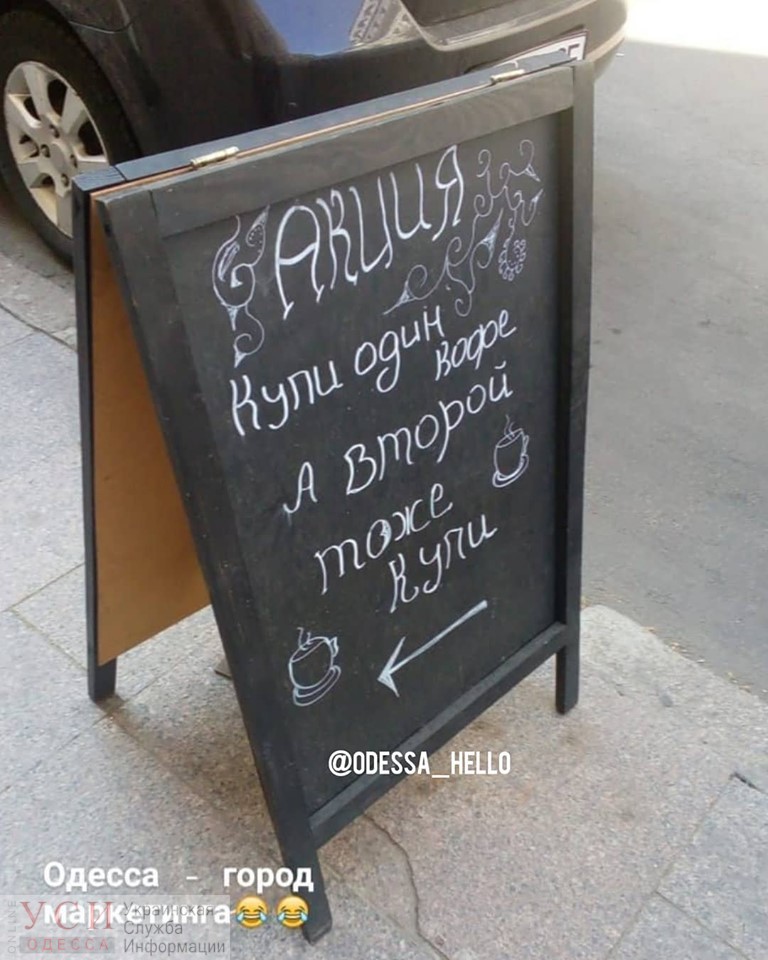 АКЦИЯ
Купи один
кофе
А второй
тоже
купи
@ODESSA_HELLO
Одесса - город
маркетинга😂😂
УСН Украинская
Служба
ОДЕССА Информации